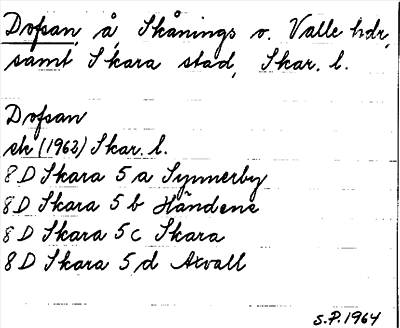 Dofsan, å, Skånings o. Valle hdr,
samt Skara stad, Skar. l.
Dofsan
ek (1962) Skar. l.
8 D Skara 5 a Synnerby
8 D Skara 5 b Händene
8 D Skara 5 c Skara
8 D Skara 5 d Axvall
S.P. 1964